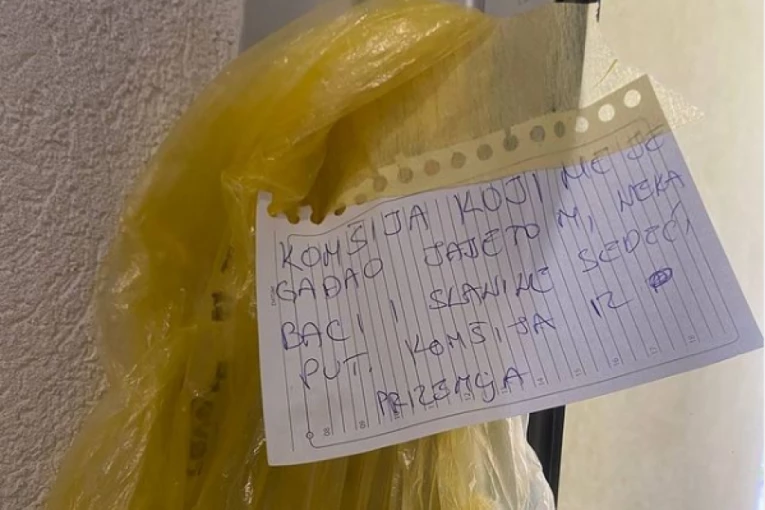 KOMŠIJA KOJI ME JE
GAĐAO JAJETOM, NEKA
BACI I SLANINE SEDEĆI
PUT. KOMŠIJA IZ
PRIZEMLJA